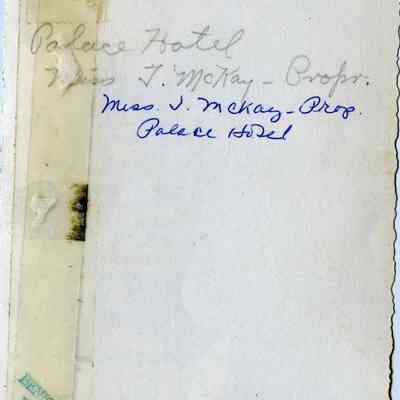 Palace Hotel
Miss J. McKay - Propr.
Miss. J. McKay - Prop.
Palace Hotel